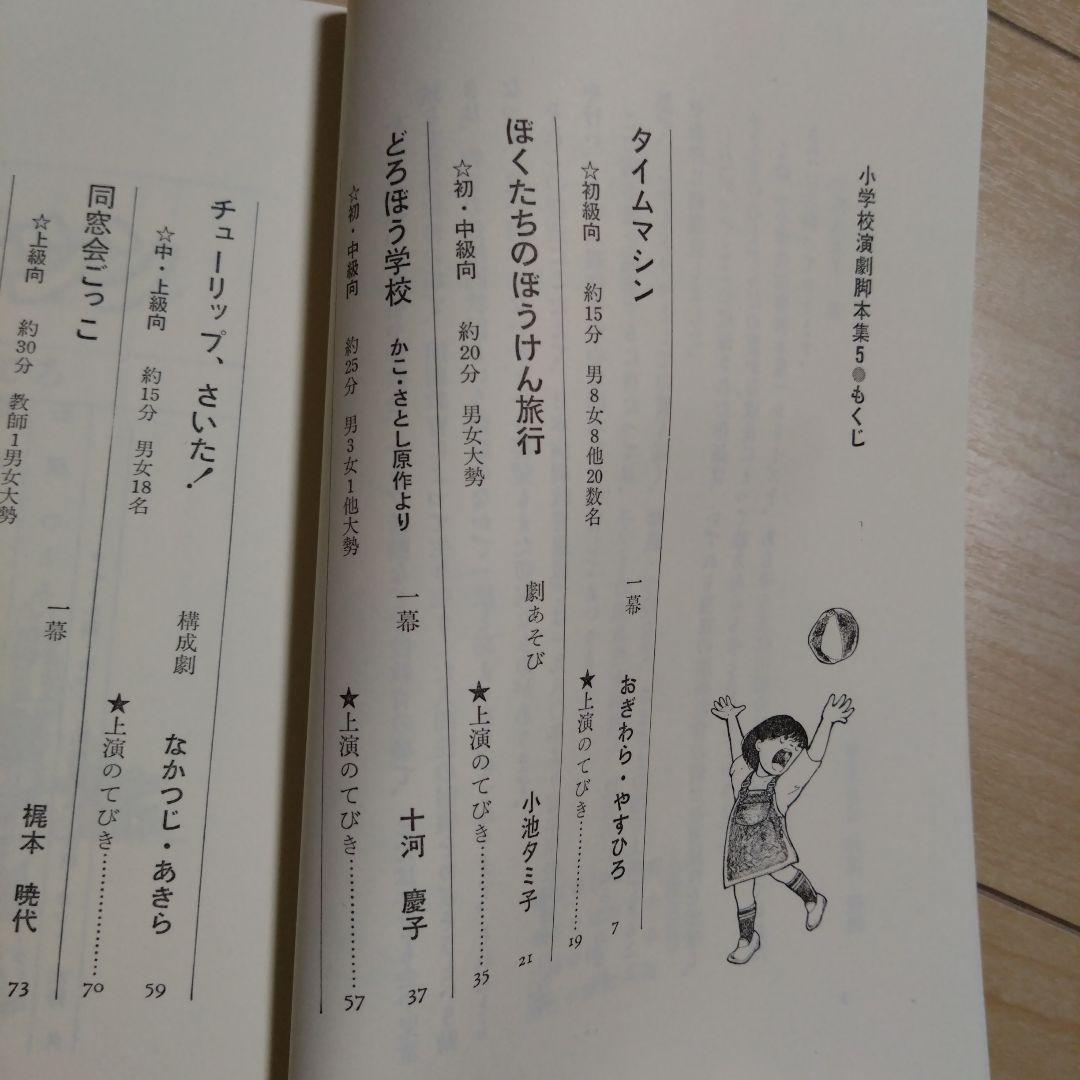 小学校演劇脚本集5●もくじ
タイムマシン 一幕 おぎわら・やすひろ 7
☆初級向 約15分 男8女8他20数名 ★上演のてびき…………19
ぼくたちのぼうけん旅行 劇あそび 小池タミ子 21
☆初・中級向 約20分 男女大勢 ★上演のてびき…………35
どろぼう学校 かこ・さとし原作より 一幕 十河 慶子 37
☆初・中級向 約25分 男3女1他大勢 ★上演のてびき…………57
チューリップ、さいた! 構成劇 なかつじ・あきら 59
☆中・上級向 約15分 男女18名 ★上演のてびき…………70
同窓会ごっこ 一幕 梶本 暁代 73
☆上級向 約30分 教師1男女大勢